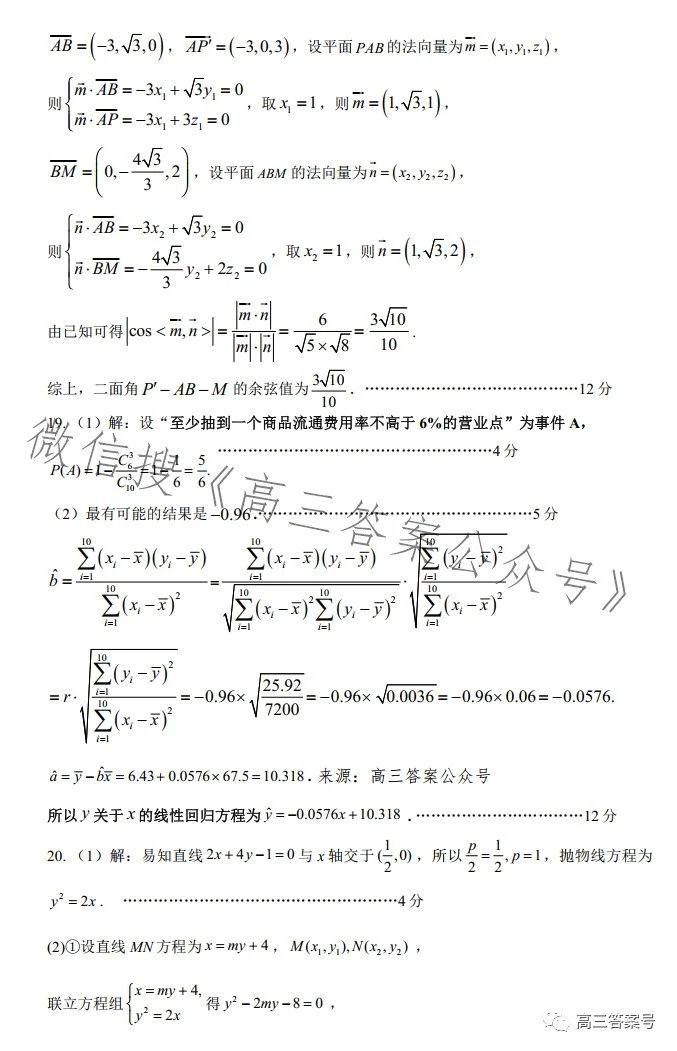 $\overrightarrow{AB}=\left(-3,\sqrt{3},0\right)$，$\overrightarrow{AP'}=\left(-3,0,3\right)$，设平面 $PAB$ 的法向量为 $\vec{m}=\left(x_1,y_1,z_1\right)$，
则 $\begin{cases}\vec{m}\cdot\overrightarrow{AB}=-3x_1+\sqrt{3}y_1=0\\ \vec{m}\cdot\overrightarrow{AP}=-3x_1+3z_1=0\end{cases}$，取 $x_1=1$，则 $\vec{m}=\left(1,\sqrt{3},1\right)$，
$\overrightarrow{BM}=\left(0,-\frac{4\sqrt{3}}{3},2\right)$，设平面 $ABM$ 的法向量为 $\vec{n}=\left(x_2,y_2,z_2\right)$，
则 $\begin{cases}\vec{n}\cdot\overrightarrow{AB}=-3x_2+\sqrt{3}y_2=0\\ \vec{n}\cdot\overrightarrow{BM}=-\frac{4\sqrt{3}}{3}y_2+2z_2=0\end{cases}$，取 $x_2=1$，则 $\vec{n}=\left(1,\sqrt{3},2\right)$，
由已知可得 $\left|\cos<\vec{m},\vec{n}>\right|=\frac{\left|\vec{m}\cdot\vec{n}\right|}{\left|\vec{m}\right|\cdot\left|\vec{n}\right|}=\frac{6}{\sqrt{5}\times\sqrt{8}}=\frac{3\sqrt{10}}{10}$.
综上，二面角 $P'-AB-M$ 的余弦值为 $\frac{3\sqrt{10}}{10}$．……………………………………12 分
19.（1）解：设“至少抽到一个商品流通费用率不高于 6%的营业点”为事件 A，
$P(A)=1-\frac{C_6^3}{C_{10}^3}=1-\frac{1}{6}=\frac{5}{6}$. ………………………………………………4 分
（2）最有可能的结果是 $-0.96$.………………………………………………5 分
$\hat{b}=\frac{\sum_{i=1}^{10}(x_i-\bar{x})(y_i-\bar{y})}{\sum_{i=1}^{10}(x_i-\bar{x})^2}=\frac{\sum_{i=1}^{10}(x_i-\bar{x})(y_i-\bar{y})}{\sqrt{\sum_{i=1}^{10}(x_i-\bar{x})^2\sum_{i=1}^{10}(y_i-\bar{y})^2}}\cdot\sqrt{\frac{\sum_{i=1}^{10}(y_i-\bar{y})^2}{\sum_{i=1}^{10}(x_i-\bar{x})^2}}$
$=r\cdot\sqrt{\frac{\sum_{i=1}^{10}(y_i-\bar{y})^2}{\sum_{i=1}^{10}(x_i-\bar{x})^2}}=-0.96\times\sqrt{\frac{25.92}{7200}}=-0.96\times\sqrt{0.0036}=-0.96\times0.06=-0.0576.$
$\hat{a}=\bar{y}-\hat{b}\bar{x}=6.43+0.0576\times67.5=10.318$．来源：高三答案公众号
所以 $y$ 关于 $x$ 的线性回归方程为 $\hat{y}=-0.0576x+10.318$．……………………………12 分
20.（1）解：易知直线 $2x+4y-1=0$ 与 $x$ 轴交于 $(\frac{1}{2},0)$，所以 $\frac{p}{2}=\frac{1}{2},p=1$，抛物线方程为
$y^2=2x$． ………………………………………………4 分
(2)①设直线 $MN$ 方程为 $x=my+4$，$M(x_1,y_1),N(x_2,y_2)$，
联立方程组 $\begin{cases}x=my+4,\\ y^2=2x\end{cases}$ 得 $y^2-2my-8=0$，
微信搜《高三答案公众号》
高三答案号